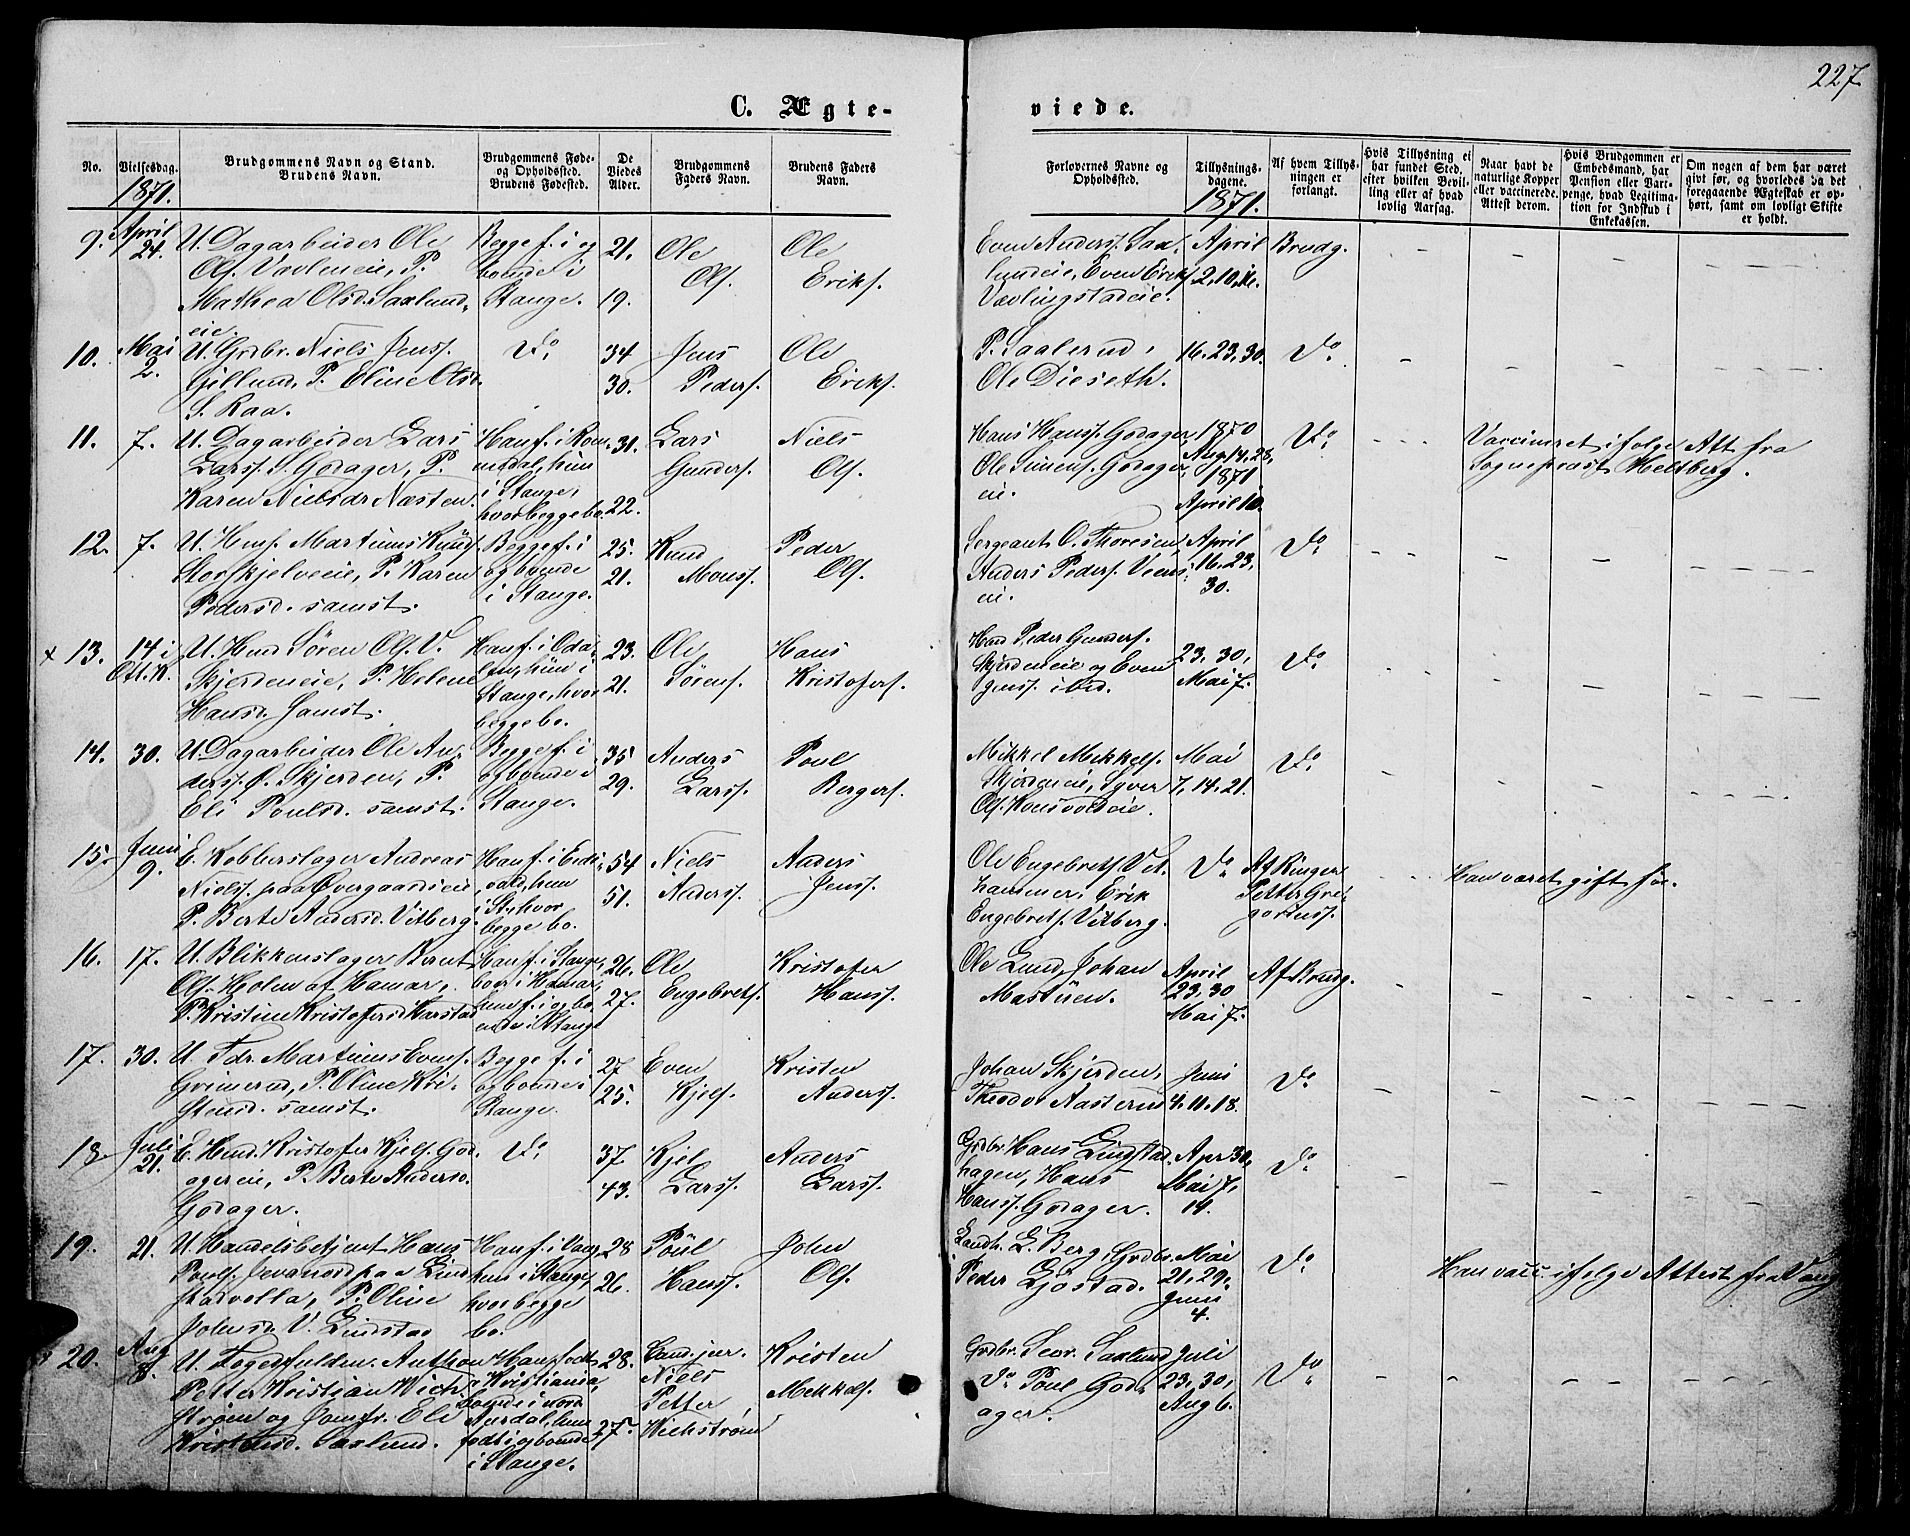 227
C. Ægte-
viede.
No.
Vielsesdag.
1871.
Brudgommens Navn og Stand.
Brudens Navn.
Brudgommens Føde-
og Opholdssted.
Brudens Fødested.
De
Viedes
Alder.
Brudgommens
Faders Navn.
Brudens Faders
Navn.
Forlovernes Navne og
Opholdssted.
Tillysnings-
dagene.
1871.
Af hvem Tillys-
ningen er
forlangt.
Hvis Tillysning ei
har fundet Sted,
efter hvilken Bevil-
ling eller af hvad
lovlig Aarsag.
Naar havt de
naturlige Kopper
eller vaccinerede.
Attest derom.
Hvis Brudgommen er
Embedsmand, har
Pension eller Vart-
penge, hvad Legitima-
tion for Indskud i
Enkekassen.
Om nogen af dem har været
gift før, og hvorledes da det
foregaaende Ægteskab er op-
hørt, samt om lovligt Skifte
er holdt.
9. April 24. U. Dagarbeider Ole
Ols. Vævleneie, P.
Mathea Olsd. Saxlund,
eie.
Begge f. i og
boende i
Stange.
21.
19.
Ole
Ols.
Ole
Eriks.
Even Anders. Sax,
lundeie, Even Eriks.
Vævlingstadeie.
April
2, 10, 16.
Brudg.
10. Mai 2. U. Grdbr. Niels Jenss.
Gillund, P. Eline Olsd.
S. Raa.
Do
34
30.
Jens
Peders.
Ole
Eriks.
P. Saalerud,
Ole Dieseth.
16. 23, 30.
Do
11. 7. U. Dagarbeider Lars
Larss. S. Godager, P.
Karen Nielsdr Næsten.
Han f. i Rom,
medal, hun
i Stange,
hvor begge bo.
31.
22.
Lars
Gunders.
Niels
Ols.
Hans Hanss. Godager,
Ole Simens. Godager,
eie.
1870
Aug. 14. 28,
1871
April 10.
Do
Vaccineret ifølge Att. fra
Sogneprest Heltberg.
12. 7. U. Hus. Martinus Knuds.
Storskjelveie, P. Karen
Pedersd. samst.
Begge f. i
og boende
i Stange.
25.
21.
Knud
Mons.
Peder
Ols.
Sergeant O. Thoresen,
Anders Peders. Veens,
eie.
April
16. 23,
30.
Do
x 13. 14 i
Ott. K.
U. Husd. Søren Ols. V.
Skjerdeneie, P. Helene
Hansd. samst.
Han f. i Oda,
len, hun i
Stange, hvor
begge bo.
23.
21.
Ole
Sørens.
Hans
Kristofers.
Husd. Peder Gunders.
Skjerdeneie og Even
Jenss. ibid.
23, 30,
Mai 7.
Do
14. 30. U. Dagarbeider Ole An,
derss. Ø. Skjerden, P.
Eli Poulsd. samst.
Begge f. i
og boende i
Stange.
35
29.
Anders
Larss.
Poul
Bergers.
Mikkel Mikkels.
Skjerdeneie, Syver
Ols. Konsvoldeie.
Mai
7, 14, 21.
Do
15. Juni 9. E. Kobberslager Andreas
Nielss. paa Øvergaardseie,
P. Berte Andersd. Vitberg.
Han f. i Eids,
vold, hun
i St., hvor
begge bo.
54
51.
Niels
Anderss.
Anders
Jenss.
Ole Engebrets. Vet,
hammer, Erik
Engebrets. Vitberg.
Do
Af Ringer
Petter Gre,
gorius.
Han været gift før.
16. 17. U. Blikkenslager Bernt
Ols. Holen af Hamar,
P. Kristine Kristofersd. Harstad
Han f. i Stange,
boer i Hamar,
hun f. i og bo,
ende i Stange
26.
27.
Ole
Engebrets.
Kristofer
Hanss.
Ole Lund, Johan
Mastuen.
April
23. 30
Mai 7.
Af Brudg.
17. 30. U. Fdr. Martinus Evens.
Grimerud, P. Oline Kri-
stensd. samst.
Begge f. i
og boende i
Stange.
27
25.
Even
Kjels.
Kristen
Anders.
Johan Skjerden,
Theodor Aasterud
Juni
4. 11. 18.
Do
18. Juli 21. E. Husd. Kristofer Kjels. God,
agereie, P. Berte Andersd.
Godager.
Do
37
43.
Kjel
Larss.
Anders
Larss.
Grdbr. Hans Lindstad,
hagen, Hans
Hanss. Godager.
Apr 30,
Mai 7,
14.
Do
19. 21. U. Handelsbetjent Hans
Pouls. Jevanord paa Lind
stadvolla, P. Oline
Johnsd. V. Lindstad
Han f. i Vang,
hun i Stange,
hvor begge
bo.
28
26.
Poul
Hanss.
John
Ols.
Landh. L. Berg, Grdbr.
Peder Gjøstad.
Mai
21, 29,
Juni
4.
Do
Han vacc. ifølge Attest fra Vang
20. Aug 8. U. Fogedfuldm. Anthon
Petter Kristian Wich,
strøm og Jomfr. Eli
Kristensd. Saxlund.
Han født
i Kristiania,
boende i Nord
Aurdal, hun
født i og boende
i Stange.
28.
27.
Cand. jur.
Niels
Petter
Wichstrøm
Kristen
Mikkels.
Grdbr. Secr. Saxlund
Do Poul God,
ager.
Juli
23, 30,
Aug 6.
Do